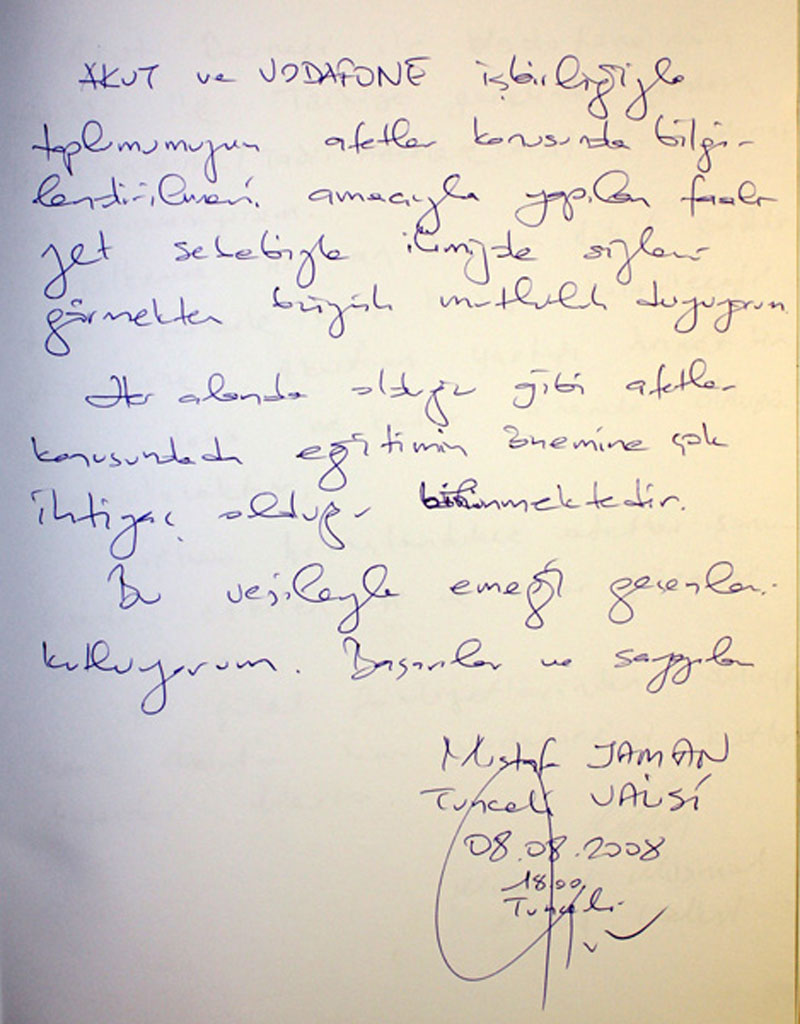 AKUT ve VODAFONE işbirliğiyle
toplumumuzun afetler konusunda bilgi-
lendirilmesi amacıyla yapılan faali-
yet sebebiyle ilimizde sizleri
görmekten büyük mutluluk duyuyorum
Her alanda olduğu gibi afetler
konusundada eğitimin önemine çok
ihtiyaç olduğu bilinmektedir.
Bu vesileyle emeği geçenleri
kutluyorum. Başarılar ve saygılar
Mustafa YAMAN
Tunceli VALİSİ
08.08.2008
18.00
Tunceli